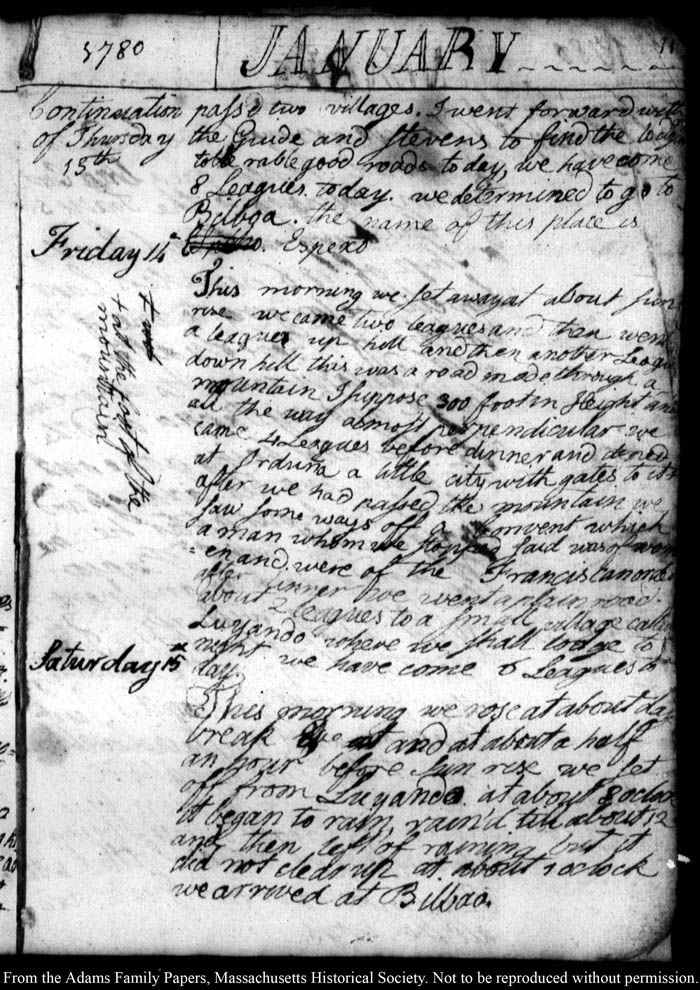 1780
JANUARY
Continuation
of Thursday
13th
pass'd two villages. I went forward with
the Guide and Stevens to find the
tolle rable good roads today, we have come
8 Leagues. today. we determined to go to
Bilboa. the name of this place is
Espexo
Friday 14
This morning we set away at about sun
rise we came two leagues and then went
a leagues up hill and then another League
down hill this was a road made through a
mountain I suppose 300 foot in Height and
all the way almost perpendicular we
came 4 Leagues before dinner and dined
at Orduña a little city with gates to it
after we had passed the mountain we
saw some ways off a Convent which
a man whom we stopped said was of wom
=en and were of the Franciscan order
after dinner we went a plain road
about 2 leagues to a small village called
Luyando where we shall lodge to
night we have come 6 Leagues to
day.
+ at the foot of the
mountain
Saturday 15th
This morning we rose at about day
break and at about a half
an hour before sun rise we set
off from Luyando at about 8 oclock
it began to rain, rain'd till about 12
and then left of raining but it
did not clear up at about 1 oclock
we arrived at Bilbao.
From the Adams Family Papers, Massachusetts Historical Society. Not to be reproduced without permission.